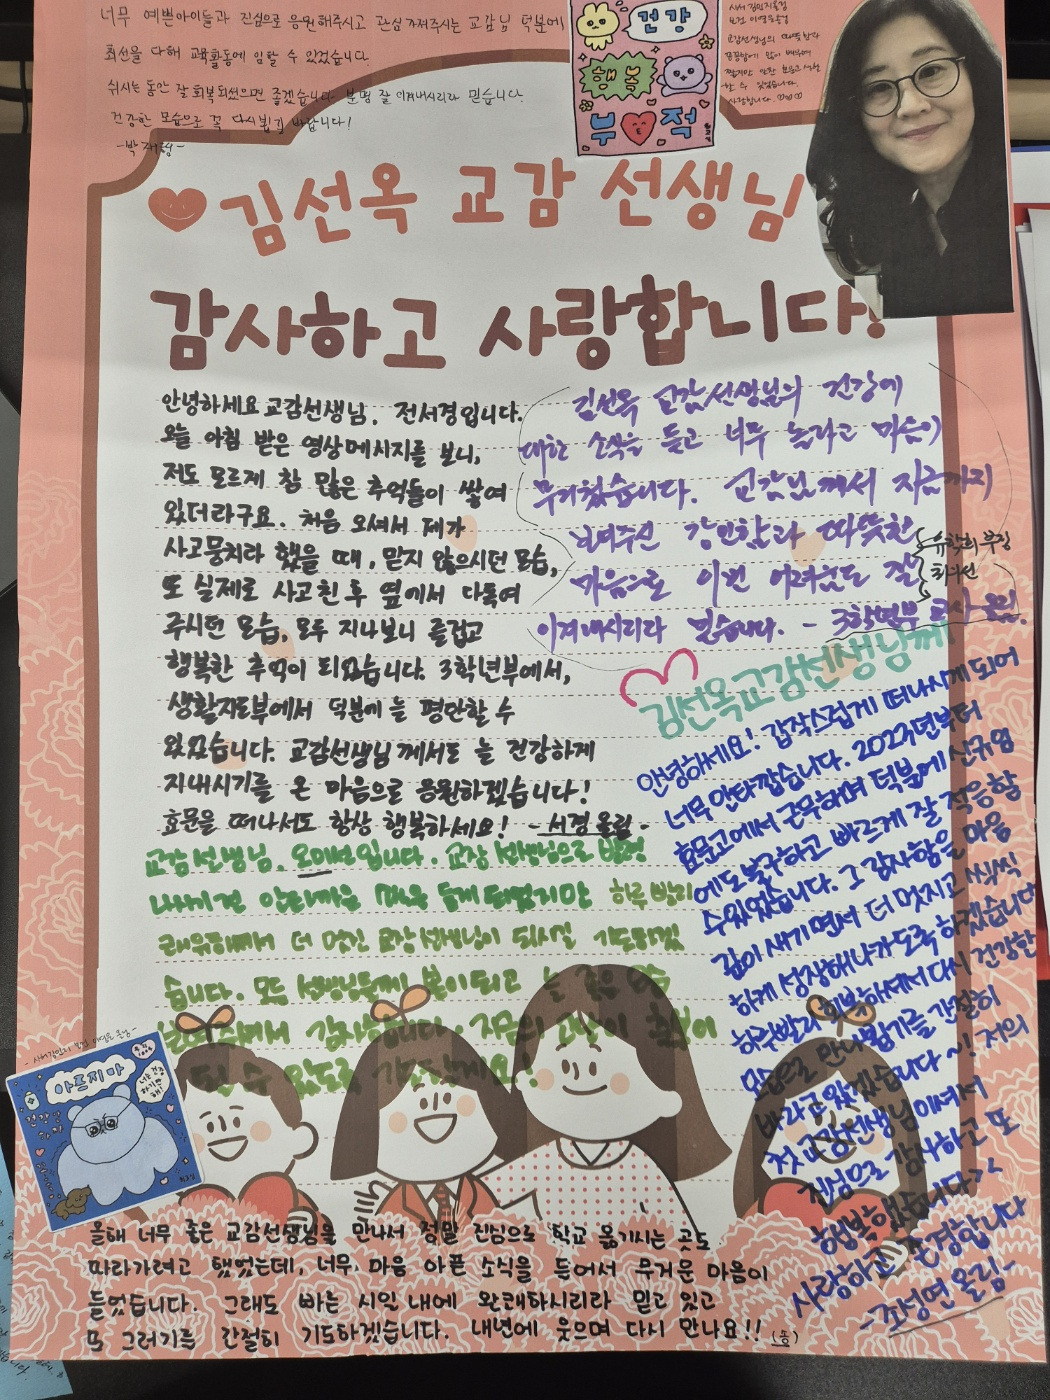 너무 예쁜아이들과 진심으로 응원해주시고 관심 가져주시는 교감님 덕분에
최선을 다해 교육활동에 임할 수 있었습니다.
쉬시는 동안 잘 회복되셨으면 좋겠습니다. 분명 잘 이겨내시리라 믿습니다.
건강한 모습으로 꼭 다시뵙길 바랍니다!
건강
행복
부적
교감선생님의 따뜻함과
할 수 있었습니다.
사랑합니다.
김선옥 교감 선생님
감사하고 사랑합니다!
안녕하세요 교감선생님, 전서경입니다.
오늘 아침 받은 영상메시지를 보니,
저도 모르게 참 많은 추억들이 쌓여
있더라구요. 처음 오셔서 제가
사고뭉치라 했을 때, 믿지 않으시던 모습,
또 실제로 사고친 후 옆에서 다독여
주시던 모습, 모두 지나보니 즐겁고
행복한 추억이 되었습니다. 3학년부에서,
생활지도부에서 덕분에 늘 평안할 수
있었습니다. 교감선생님께서도 늘 건강하게
지내시기를 온 마음으로 응원하겠습니다!
효문을 떠나서도 항상 행복하세요! -서경 올림-
김선옥 교감선생님의 건강에
대한 소식을 듣고 너무 놀라고 마음이
무거웠습니다. 교감님께서 지금까지
보여주신 강인함과 따뜻한
마음으로 이번 어려움도 잘
이겨내시리라 믿습니다. - 3학년부 교사 올림.
김선옥교감선생님께
안녕하세요! 갑작스럽게 떠나시게 되어
너무 안타깝습니다. 2023년부터
효문고에서 근무하며 덕분에 신규임
에도 불구하고 빠르게 잘 적응할
수있었습니다. 그 감사함을 마음
깊이 새기면서 더 멋지고 씩씩
하게 성장해나가도록 하겠습니다
하루빨리 회복하셔서 다시 건강한
모습으로 만나뵙기를 간절히
바라고 있겠습니다~! 저의
첫 교감선생님이셔서
진심으로 감사하고 또
행복했습니다>.<
사랑하고 존경합니다
-조성연 올림-
교감선생님, 입니다. 교장 선생님으로 발령
하루 빨리
쾌유하셔서 더 멋진 교장 선생님이 되시길 기도하겠
습니다. 모든 선생님들께 늘 좋은 모습
감사합니다.
아프지마
올해 너무 좋은 교감선생님을 만나서 정말 진심으로 학교 옮기시는 곳도
따라가려고 했었는데, 너무 마음 아픈 소식을 들어서 무거운 마음이
들었습니다. 그래도 빠른 시일 내에 완쾌하시리라 믿고 있고
또 그러기를 간절히 기도하겠습니다. 내년에 웃으며 다시 만나요!!